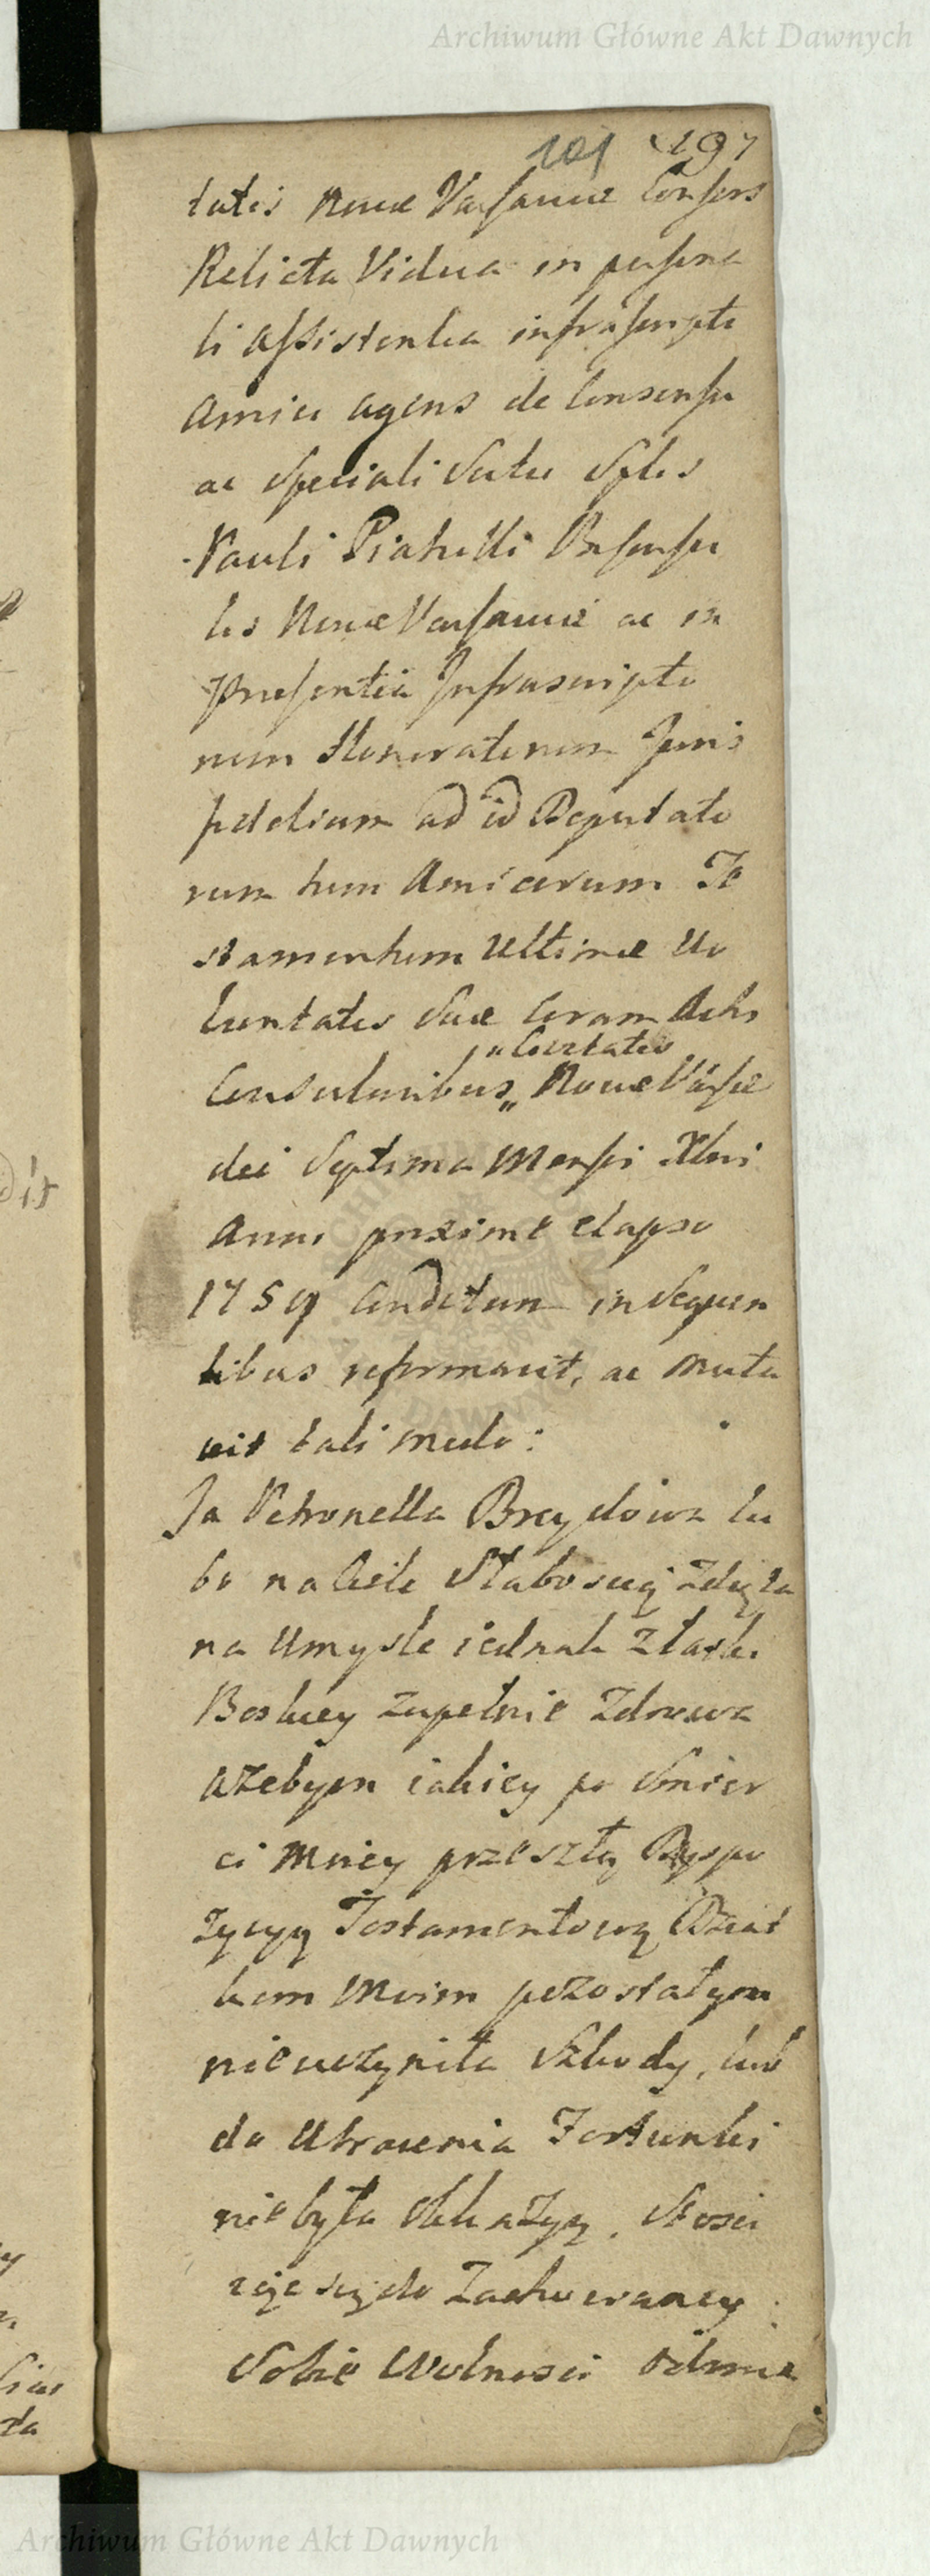 Archiwum Główne Akt Dawnych
101 197
tatis Novæ Varsaviæ Consors
Relicta Vidua in persona
li assistentia infrascripti
Amici agens de Consensu
ac speciali Scitu Spls
Pauli Proconsu
lis Novæ Varsaviæ ac in
præsentia Infrascripto
rum Honoratorum Juris
fidelium ad id Deputato
rum tum Amicorum Te
stamentum Ultimæ Vo
luntatis Suæ Coram Actis
Civitatis
Consularibus Novæ Varsæ
die Septima Mensis Xbris
Anni proxime elapso
1759 Conditum in Sequen
tibus reformavit, ac Muta
vit tali modo:
Ja Petronella Breydowa lu
bo na Ciele Słabością Zdięta
na Umyśle iednak Z łaski
Boskiey Zupełnie Zdrowa
ażebym iakiey po Smier
ci Moiey przeszłą Dyspo
zycyą Testamentową Dziat
kom Moim pozostałym
nieuczyniła Szkody, lub
do Utracenia Fortunki
niebyła Okkazyą, Stosu
ięc się do Zachowaney
Sobie Wolnosci Odmie
Archiwum Główne Akt Dawnych